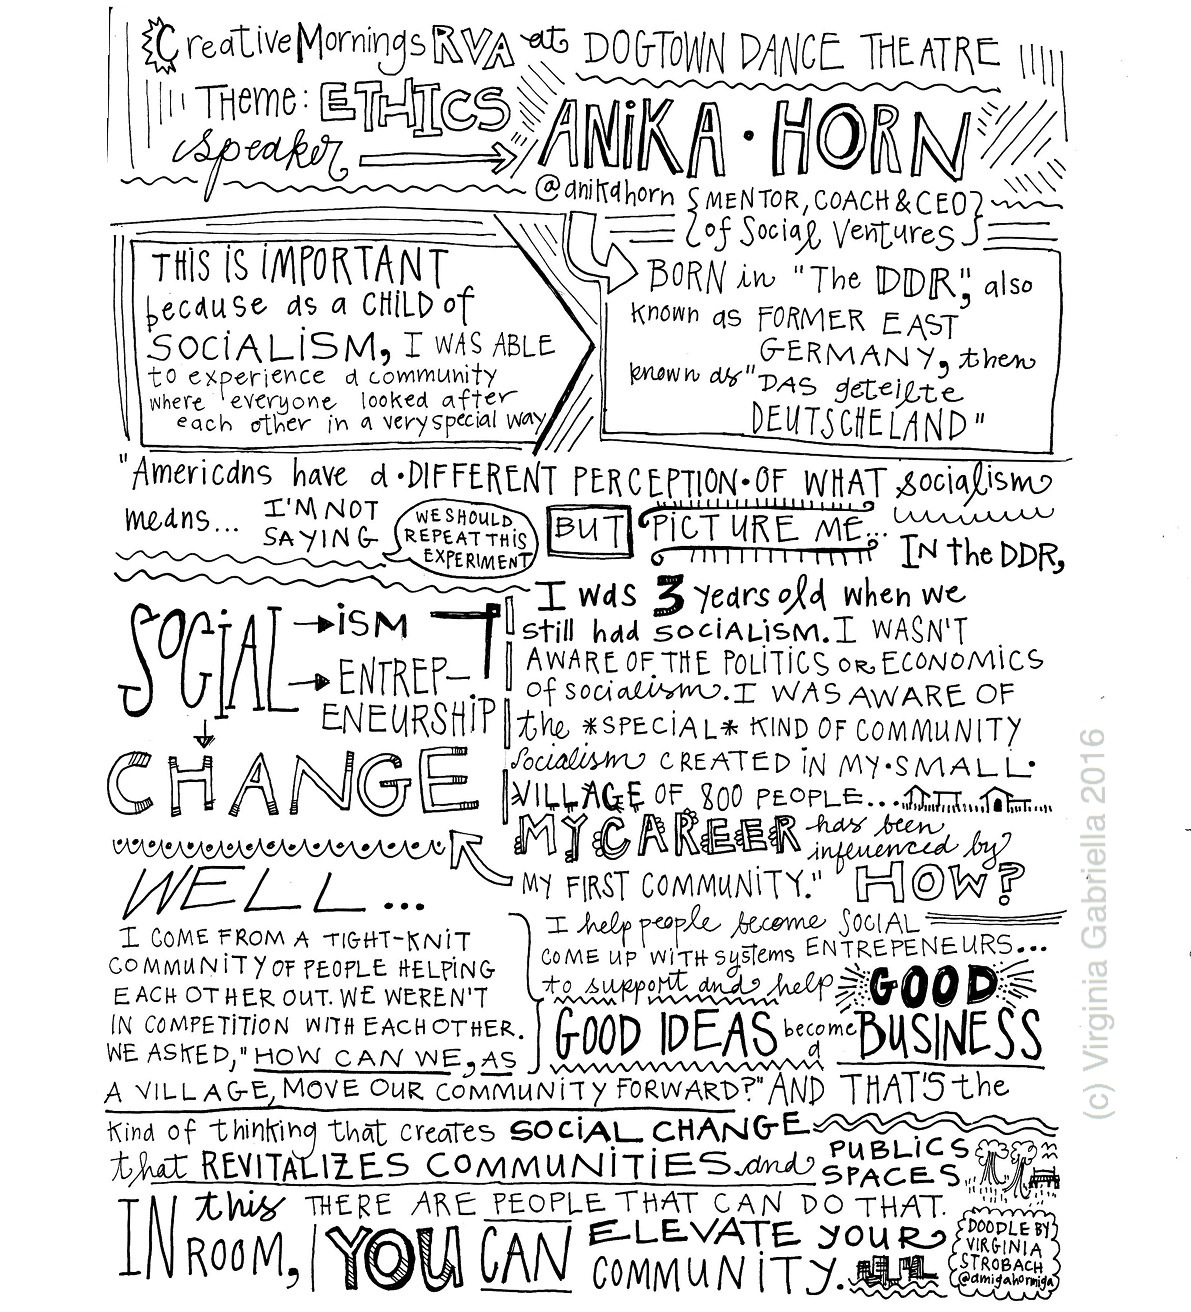 CreativeMornings RVA at DOGTOWN DANCE THEATRE
Theme: ETHICS
speaker
ANiKA · HORN
@anikahorn {MENTOR, COACH & CEO}
{of Social Ventures}
THIS IS iMPORTANT
because as a CHiLD of
SOCiALiSM, I WAS ABLE
to experience a community
where everyone looked after
each other in a very special way
BORN in "The DDR", also
known as FORMER EAST
GERMANY, then
known as "DAS geteilte
DEUTSCHELAND"
"Americans have a · DIFFERENT PERCEPTION · OF WHAT socialism
means... I'M NOT
SAYING
WE SHOULD
REPEAT THIS
EXPERIMENT
BUT PiCTURE ME...
IN the DDR,
I was 3 years old when we
still had SOCiALiSM. I WASN'T
AWARE OF THE POLiTiCS OR ECONOMiCS
of socialism. I WAS AWARE OF
the *SPECiAL* KiND OF COMMUNiTY
Socialism CREATED iN MY · SMALL ·
ViLLAGE OF 800 PEOPLE...
MY CAREER has been
influenced by
MY FIRST COMMUNiTY." HOW?
SOCIAL → iSM
→ ENTREP-
ENEURSHiP
CHANGE
WELL...
I COME FROM A TiGHT-KNiT
COMMUNiTY OF PEOPLE HELPiNG
EACH OTHER OUT. WE WEREN'T
IN COMPETiTiON WiTH EACH OTHER.
WE ASKED, "HOW CAN WE, AS
A ViLLAGE, MOVE OUR COMMUNiTY FORWARD?" AND THAT'S the
I help people become SOCiAL
ENTREPENEURS...
COME UP WiTH systems
to support and help GOOD
GOOD IDEAS become a BUSiNESS
Kind of thinking that creates SOCiAL CHANGE
that REViTALiZES COMMUNiTiES and PUBLiCS
SPACES
IN this ROOM, THERE ARE PEOPLE THAT CAN DO THAT.
YOU CAN ELEVATE YOUR
COMMUNiTY.
DOODLE BY
ViRGiNiA
STROBACH
@amigahormiga
(c) Virginia Gabriella 2016